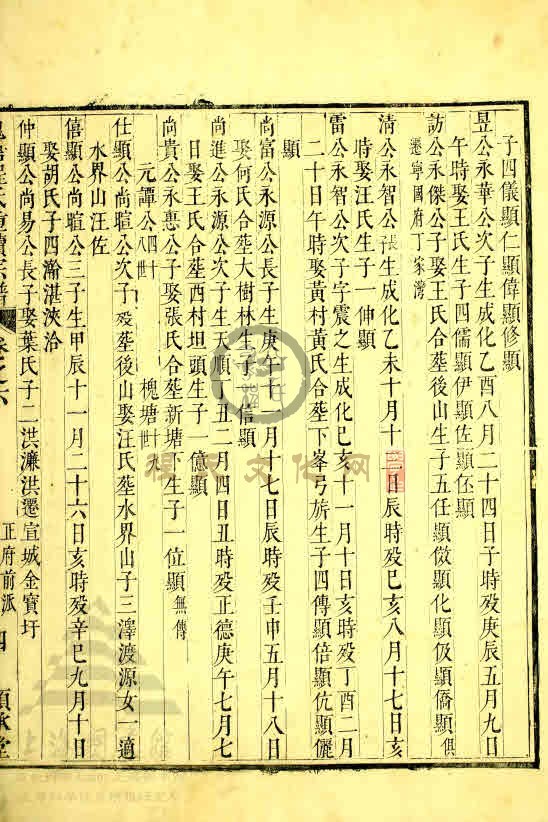 子四儀顯仁顯偉顯修顯
昱公永華公次子生成化乙酉八月二十四日子時歿庚辰五月九日
午時娶王氏生子四儒顯伊顯佐顯伾顯
訪公永傑公子娶王氏合塟後山生子五任顯倣顯化顯伋顯僑顯俱
遷寧國府丁家灣
清公永智公長子生成化乙未十月十二日辰時歿己亥八月十七日亥
時娶汪氏生子一伸顯
雷公永智公次子字震之生成化己亥十一月十日亥時歿丁酉二月
二十日午時娶黃村黃氏合塟下峯弓旂生子四傳顯倍顯伉顯儷
顯
尚富公永源公長子生庚午十一月十七日辰時歿壬申五月十八日
娶何氏合塟大樹林生子一信顯
尚進公永源公次子生天順丁丑二月四日丑時歿正德庚午七月七
日娶王氏合塟西村坦頭生子一億顯
尚貴公永惠公子娶張氏合塟新塘下生子一位顯無傳
元譚公四十八世 槐塘卅九
仕顯公尚暄公次子歿塟後山娶汪氏塟水界山子三澤渡源女一適
水界山汪佐
僖顯公尚暄公三子生甲辰十一月二十六日亥時歿辛巳九月十日
娶胡氏子四瀚湛浹洽
仲顯公尚易公長子娶葉氏子二洪濂洪遷宣城金寶圩
重續宗譜 卷之六 正府前派 四 順承堂